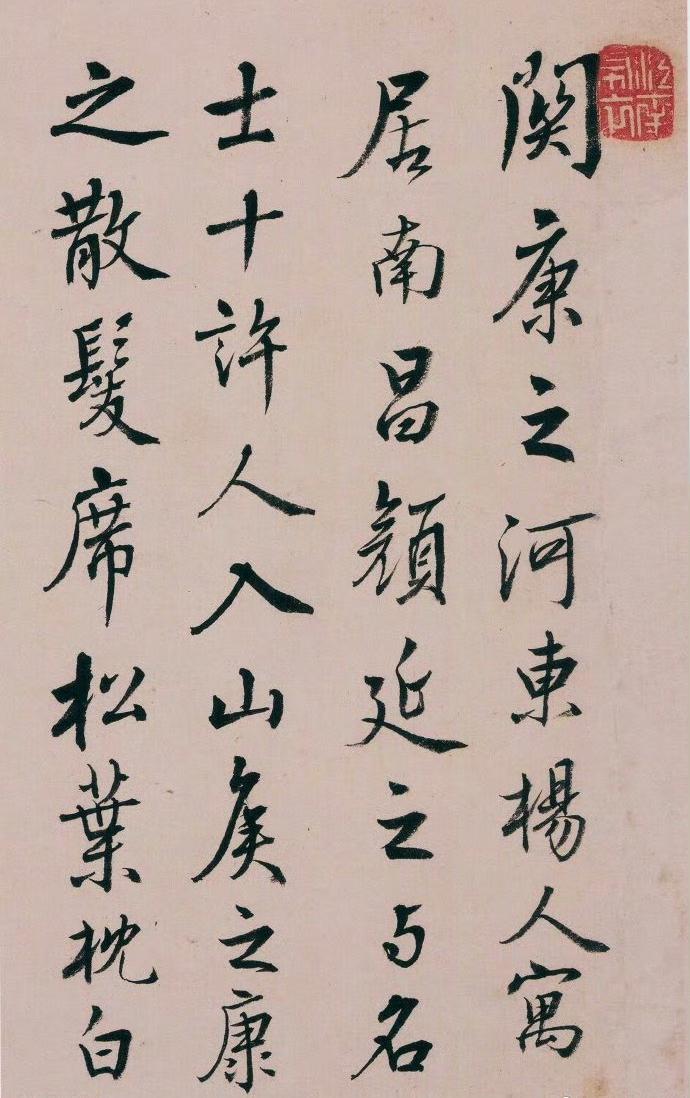 関康之河東楊人寓
居南昌顔延之与名
士十許人入山矦之康
之散髮席松葉枕白